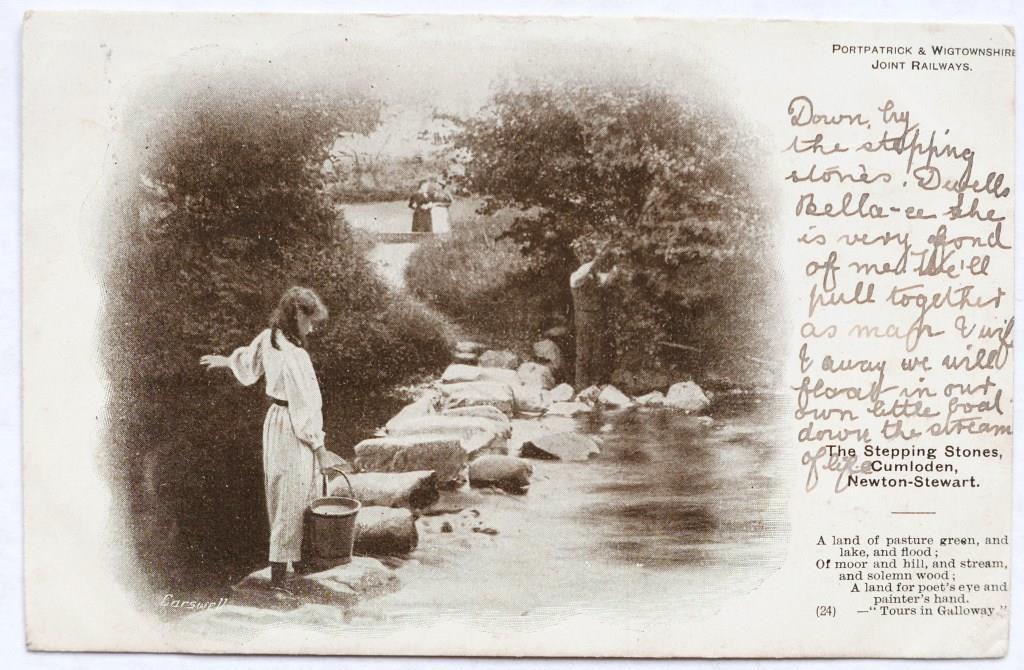 PORTPATRICK & WIGTOWNSHIRE
JOINT RAILWAYS.
Down, by
the stepping
stones. Dwells
Bella-ee she
is very fond
of me. We'll
pull together
as man I will
& away we will
float in our
own little boat
down the stream
of life
The Stepping Stones,
Cumloden,
Newton-Stewart.
A land of pasture green, and
lake, and flood;
Of moor and hill, and stream,
and solemn wood;
A land for poet's eye and
painter's hand.
(24) —"Tours in Galloway."
Carswell